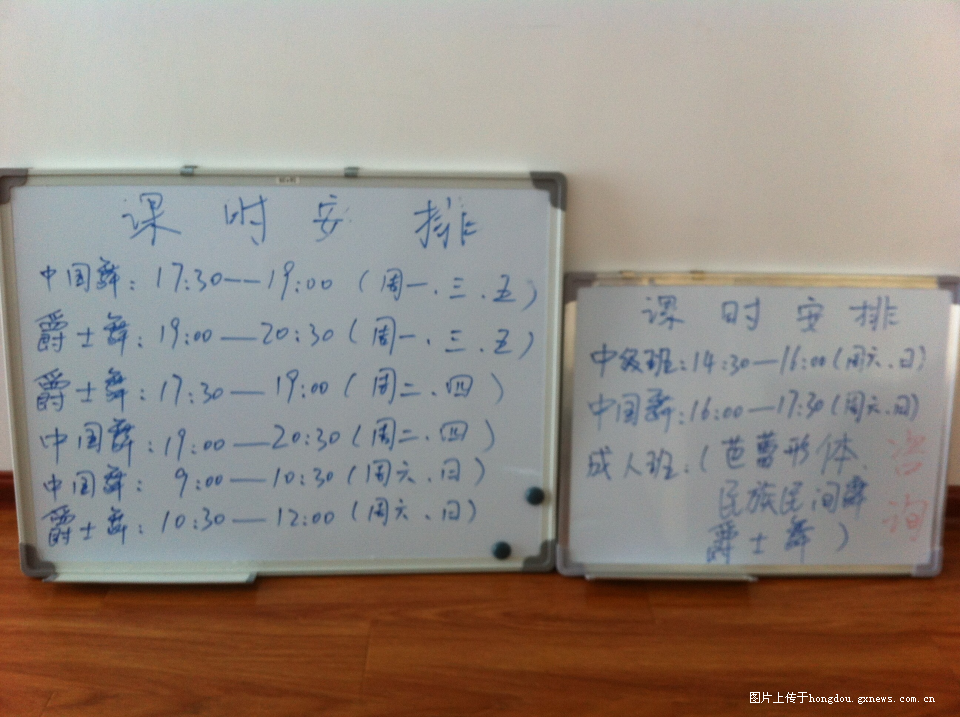 课时安排
中国舞：17:30—19:00（周一、三、五）
爵士舞：19:00—20:30（周一、三、五）
爵士舞：17:30—19:00（周二、四）
中国舞：19:00—20:30（周二、四）
中国舞：9:00—10:30（周六、日）
爵士舞：10:30—12:00（周六、日）
课时安排
中级班：14:30—16:00（周六、日）
中国舞：16:00—17:30（周六、日）
成人班：（芭蕾形体、
民族民间舞
爵士舞）
咨询
图片上传于hongdou.gxnews.com.cn